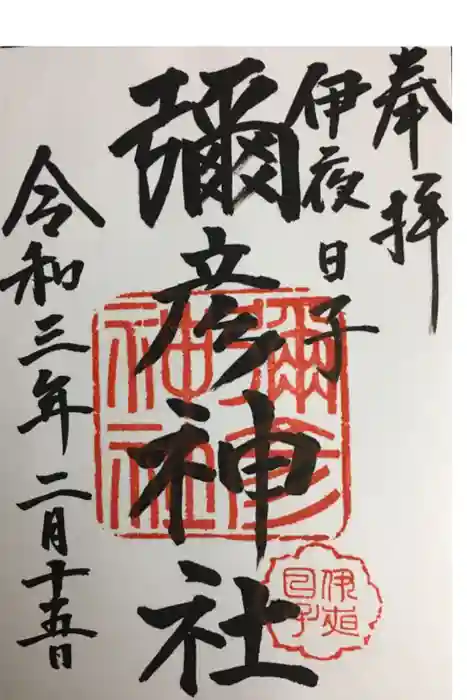 奉拝
伊夜日子
彌彦神社
令和三年二月十五日
彌彦
神社